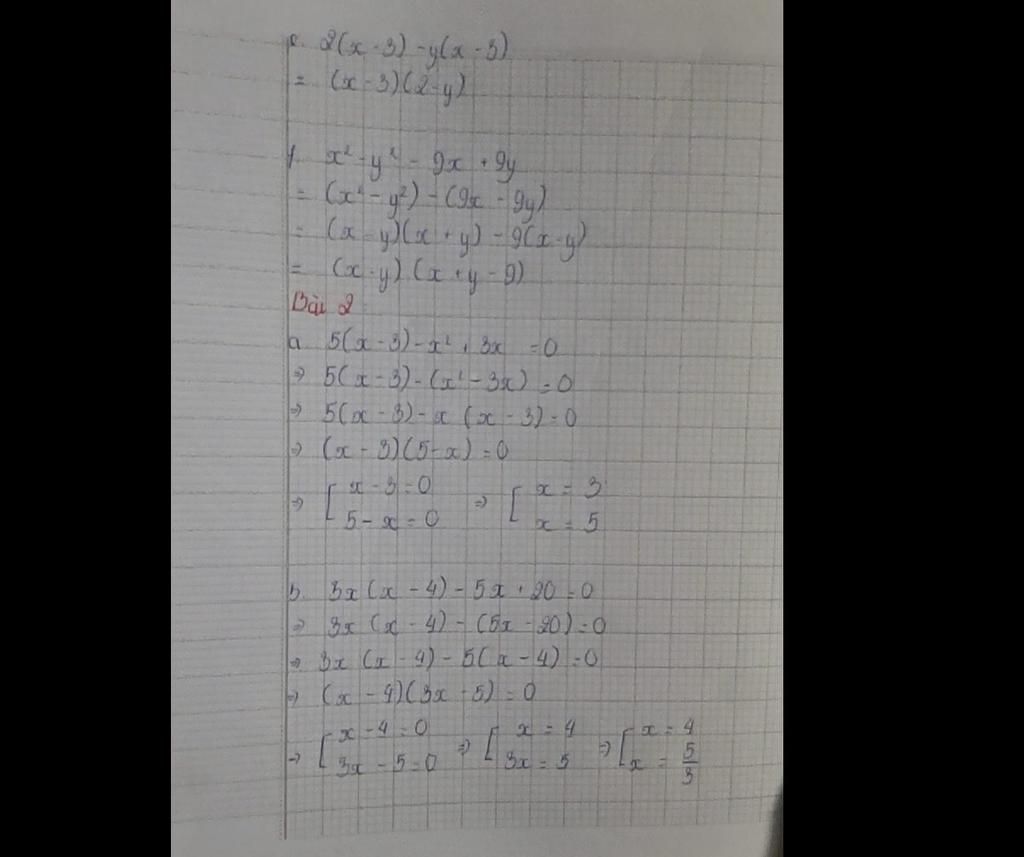 e. 2(x - 3) - y(x - 3)
= (x - 3)(2 - y)
f. x² - y² - 9x + 9y
= (x² - y²) - (9x - 9y)
= (x - y)(x + y) - 9(x - y)
= (x - y) (x + y - 9)
Bài 2
a 5(x - 3) - x² + 3x = 0
⇒ 5(x - 3) - (x² - 3x) = 0
⇒ 5(x - 3) - x (x - 3) = 0
⇒ (x - 3)(5 - x) = 0
⇒ [ x - 3 = 0 ⇒ [ x = 3
5 - x = 0 x = 5
b. 3x(x - 4) - 5x + 20 = 0
⇒ 3x (x - 4) - (5x - 20) = 0
⇒ 3x (x - 4) - 5(x - 4) = 0
⇒ (x - 4)(3x - 5) = 0
⇒ [ x - 4 = 0 ⇒ [ x = 4 ⇒ [ x = 4
3x - 5 = 0 3x = 5 x = 5/3